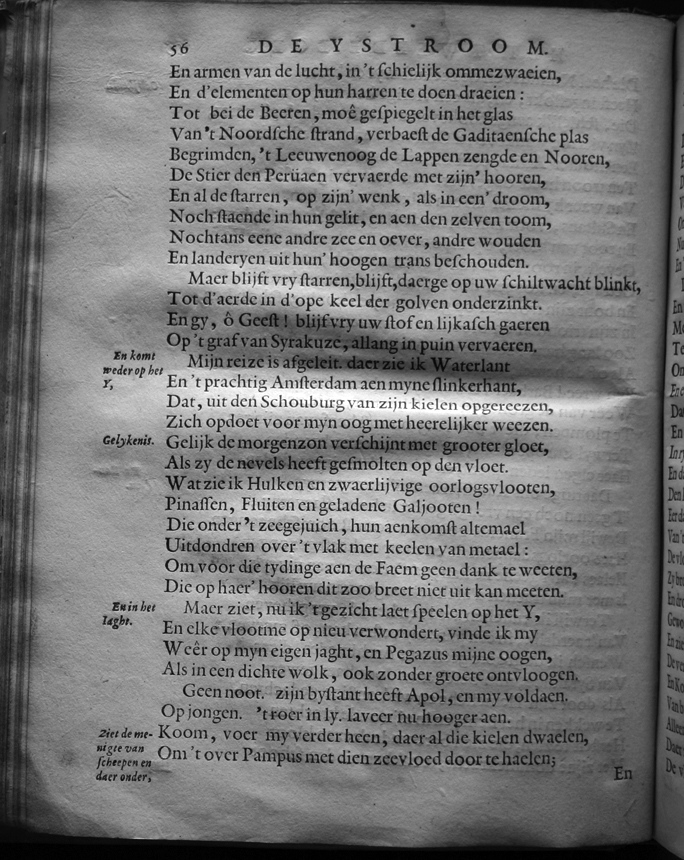 56 DE YSTROOM.
En armen van de lucht, in 't ſchielijk ommezwaeien,
En d'elementen op hun harren te doen draeien:
Tot bei de Beeren, moê geſpiegelt in het glas
Van 't Noordſche ſtrand, verbaeſt de Gaditaenſche plas
Begrimden, 't Leeuwenoog de Lappen zengde en Nooren,
De Stier den Perüaen vervaerde met zijn' hooren,
En al de ſtarren, op zijn' wenk, als in een' droom,
Noch ſtaende in hun gelit, en aen den zelven toom,
Nochtans eene andre zee en oever, andre wouden
En landeryen uit hun' hoogen trans beſchouden.
Maer blijft vry ſtarren, blijft, daerge op uw ſchiltwacht blinkt,
Tot d'aerde in d'ope keel der golven onderzinkt.
En gy, ô Geeſt! blijf vry uw ſtof en lijkaſch gaeren
Op 't graf van Syrakuze, allang in puin vervaeren.
En komt weder op het Y,
Mijn reize is afgeleit. daer zie ik Waterlant
En 't prachtig Amſterdam aen myne ſlinkerhant,
Dat, uit den Schouburg van zijn kielen opgereezen,
Zich opdoet voor myn oog met heerelijker weezen.
Gelykenis.
Gelijk de morgenzon verſchijnt met grooter gloet,
Als zy de nevels heeft geſmolten op den vloet.
Wat zie ik Hulken en zwaerlijvige oorlogsvlooten,
Pinaſſen, Fluiten en geladene Galjooten!
Die onder 't zeegejuich, hun aenkomſt altemael
Uitdondren over 't vlak met keelen van metael:
Om vóór die tydinge aen de Faem geen dank te weeten,
Die op haer' hooren dit zoo breet niet uit kan meeten.
En in het Iaght.
Maer ziet, nu ik 't gezicht laet ſpeelen op het Y,
En elke vlootme op nieu verwondert, vinde ik my
Weêr op myn eigen jaght, en Pegazus mijne oogen,
Als in een dichte wolk, ook zonder groete ontvloogen.
Geen noot. zijn byſtant heeft Apol, en my voldaen.
Op jongen. 't roer in ly. laveer nu hooger aen.
Ziet de menigte van ſcheepen en daer onder,
Koom, voer my verder heen, daer al die kielen dwaelen,
Om 't over Pampus met dien zeevloed door te haelen;
En